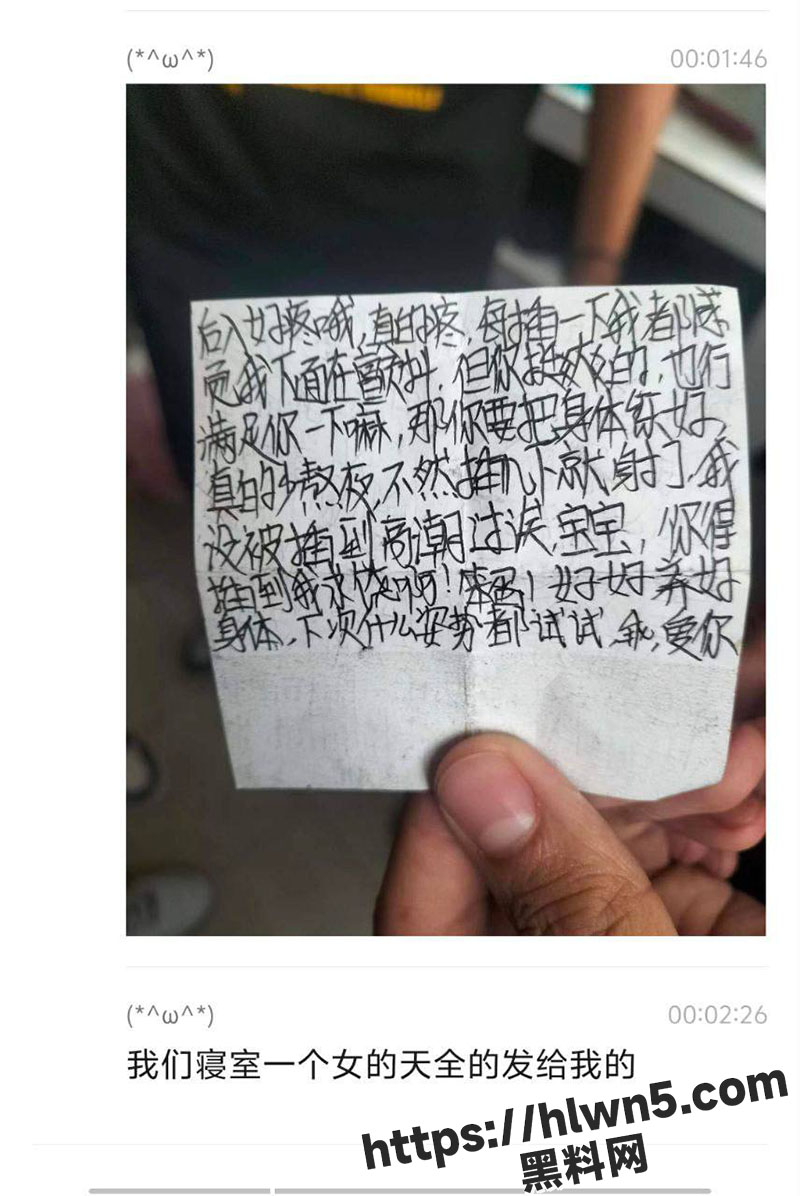 (*^ω^*) 00:01:46
后入好疼哦,真的疼,每插一下我都感
觉我下面在颤抖,但你挺爽的,也行
满足你一下嘛,那你要把身体练好,
真的少熬夜,不然插几下就射了,我
没被插到高潮过诶,宝宝,你得
插到我求饶啊!笨蛋!好好养好
身体,下次什么姿势都试试,我,爱你
(*^ω^*) 00:02:26
我们寝室一个女的天全的发给我的
https://hlwn5.com
黑料网